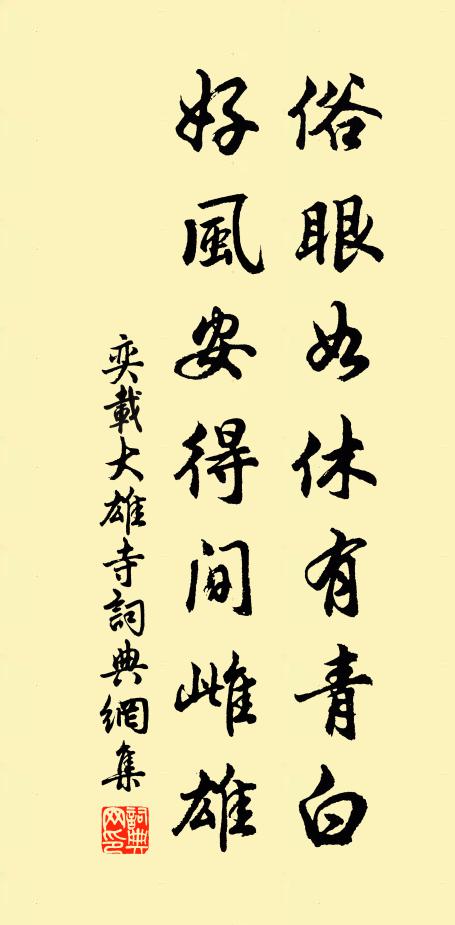 俗眼如休有青白
好風安得間雌雄
奕載大雄寺詞典網集
詞典网印